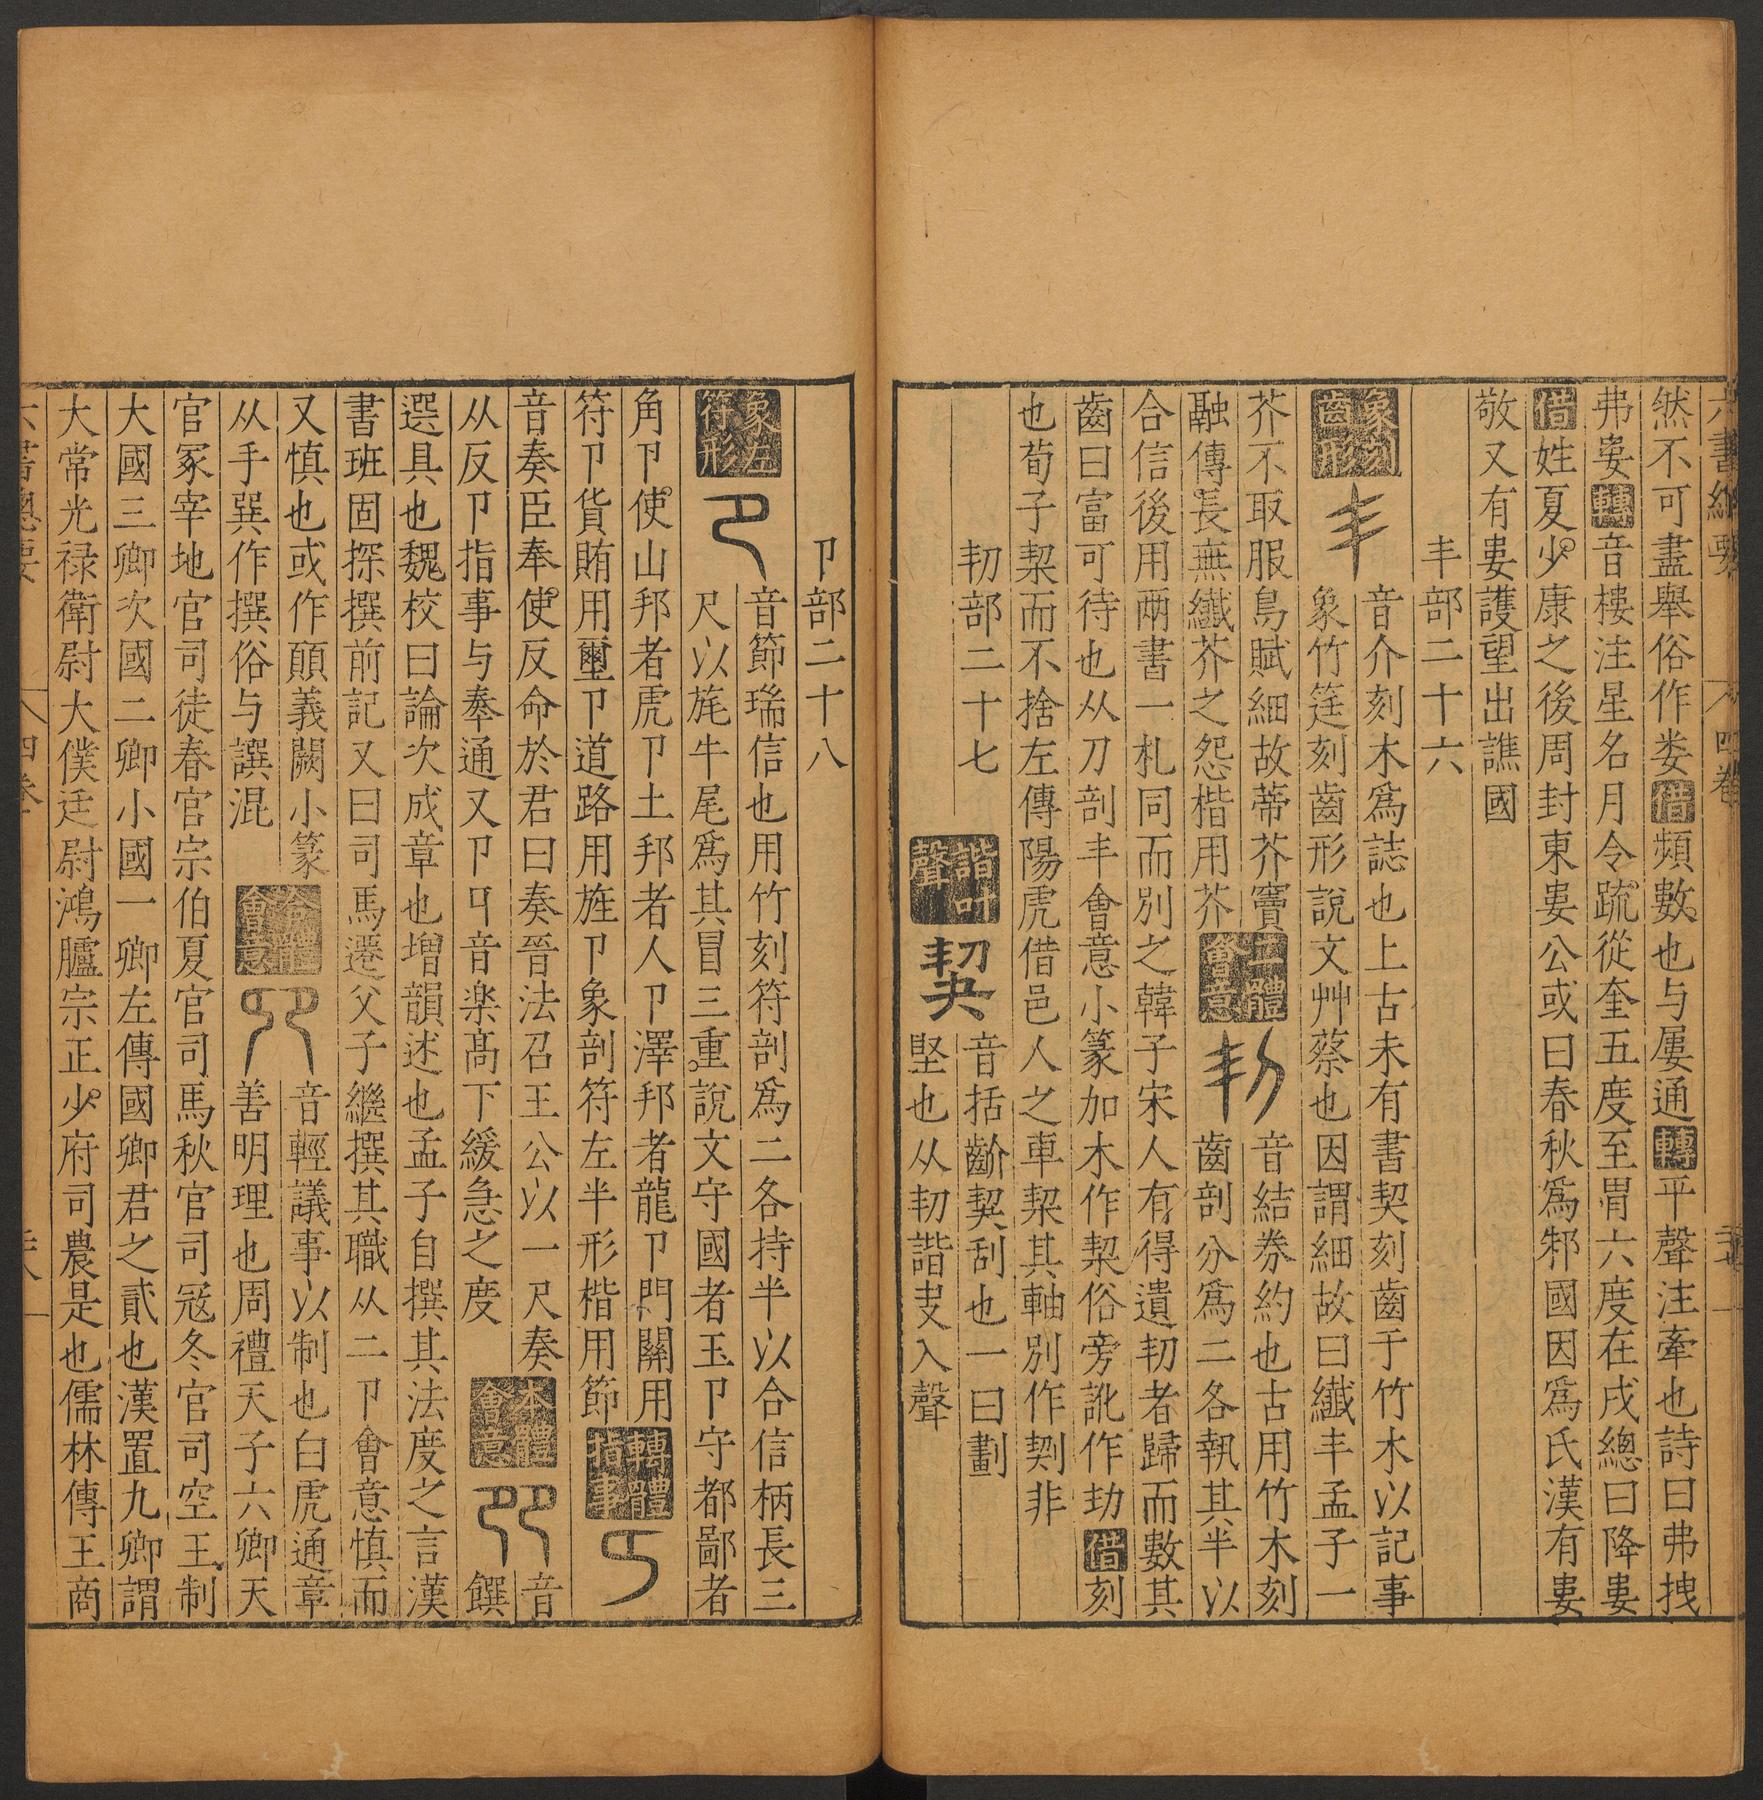 然不可盡舉俗作娄借頻數也与屢通轉平聲注牽也詩曰弗拽
弗婁轉音樓注星名月令疏從奎五度至胃六度在戌總曰降婁
借姓夏少康之後周封東婁公或曰春秋爲邾國因爲氏漢有婁
敬又有婁護望出譙國
丯部二十六
象刻齒形
丯
音介刻木爲誌也上古未有書契刻齒于竹木以記事
象竹筳刻齒形說文艸蔡也因謂細故曰纖丯孟子一
芥不取服鳥賦細故蒂芥竇
融傳長無纖芥之怨楷用芥
二體會意
㓞
音結券約也古用竹木刻
齒剖分爲二各執其半以
合信後用兩書一札同而別之韓子宋人有得遺㓞者歸而數其
齒曰富可待也从刀剖丯會意小篆加木作栔俗旁訛作刧借刻
也荀子栔而不捨左傳陽虎借邑人之車栔其軸別作契非
㓞部二十七
諧叶聲
契
音括齘契刮也一曰劃
堅也从㓞諧史入聲
卪部二十八
象左符形
卪
音節瑞信也用竹刻符剖爲二各持半以合信柄長三
尺以旄牛尾爲其冒三重說文守國者玉卪守都鄙者
角卪使山邦者虎卪土邦者人卪澤邦者龍卪門關用
符卪貨賄用璽卪道路用旌卪象剖符左半形楷用節
轉體指事
音奏臣奉使反命於君曰奏晉法召王公以一尺奏
从反卪指事与奏通又卪音楽髙下緩急之度
本體會意
音饌
選具也魏校曰論次成章也增韻述也孟子自撰其法度之言漢
書班固探撰前記又曰司馬遷父子繼撰其職从二卪會意慎而
又慎也或作顛義闕小篆
从手巽作撰俗与譔混
合體會意
音輕議事以制也白虎通章
善明理也周禮天子六卿天
官冢宰地官司徒春官宗伯夏官司馬秋官司寇冬官司空王制
大國三卿次國二卿小國一卿左傳國卿君之貳也漢置九卿謂
大常光禄衛尉大僕廷尉鴻臚宗正少府司農是也儒林傳王商
六書總要
四卷